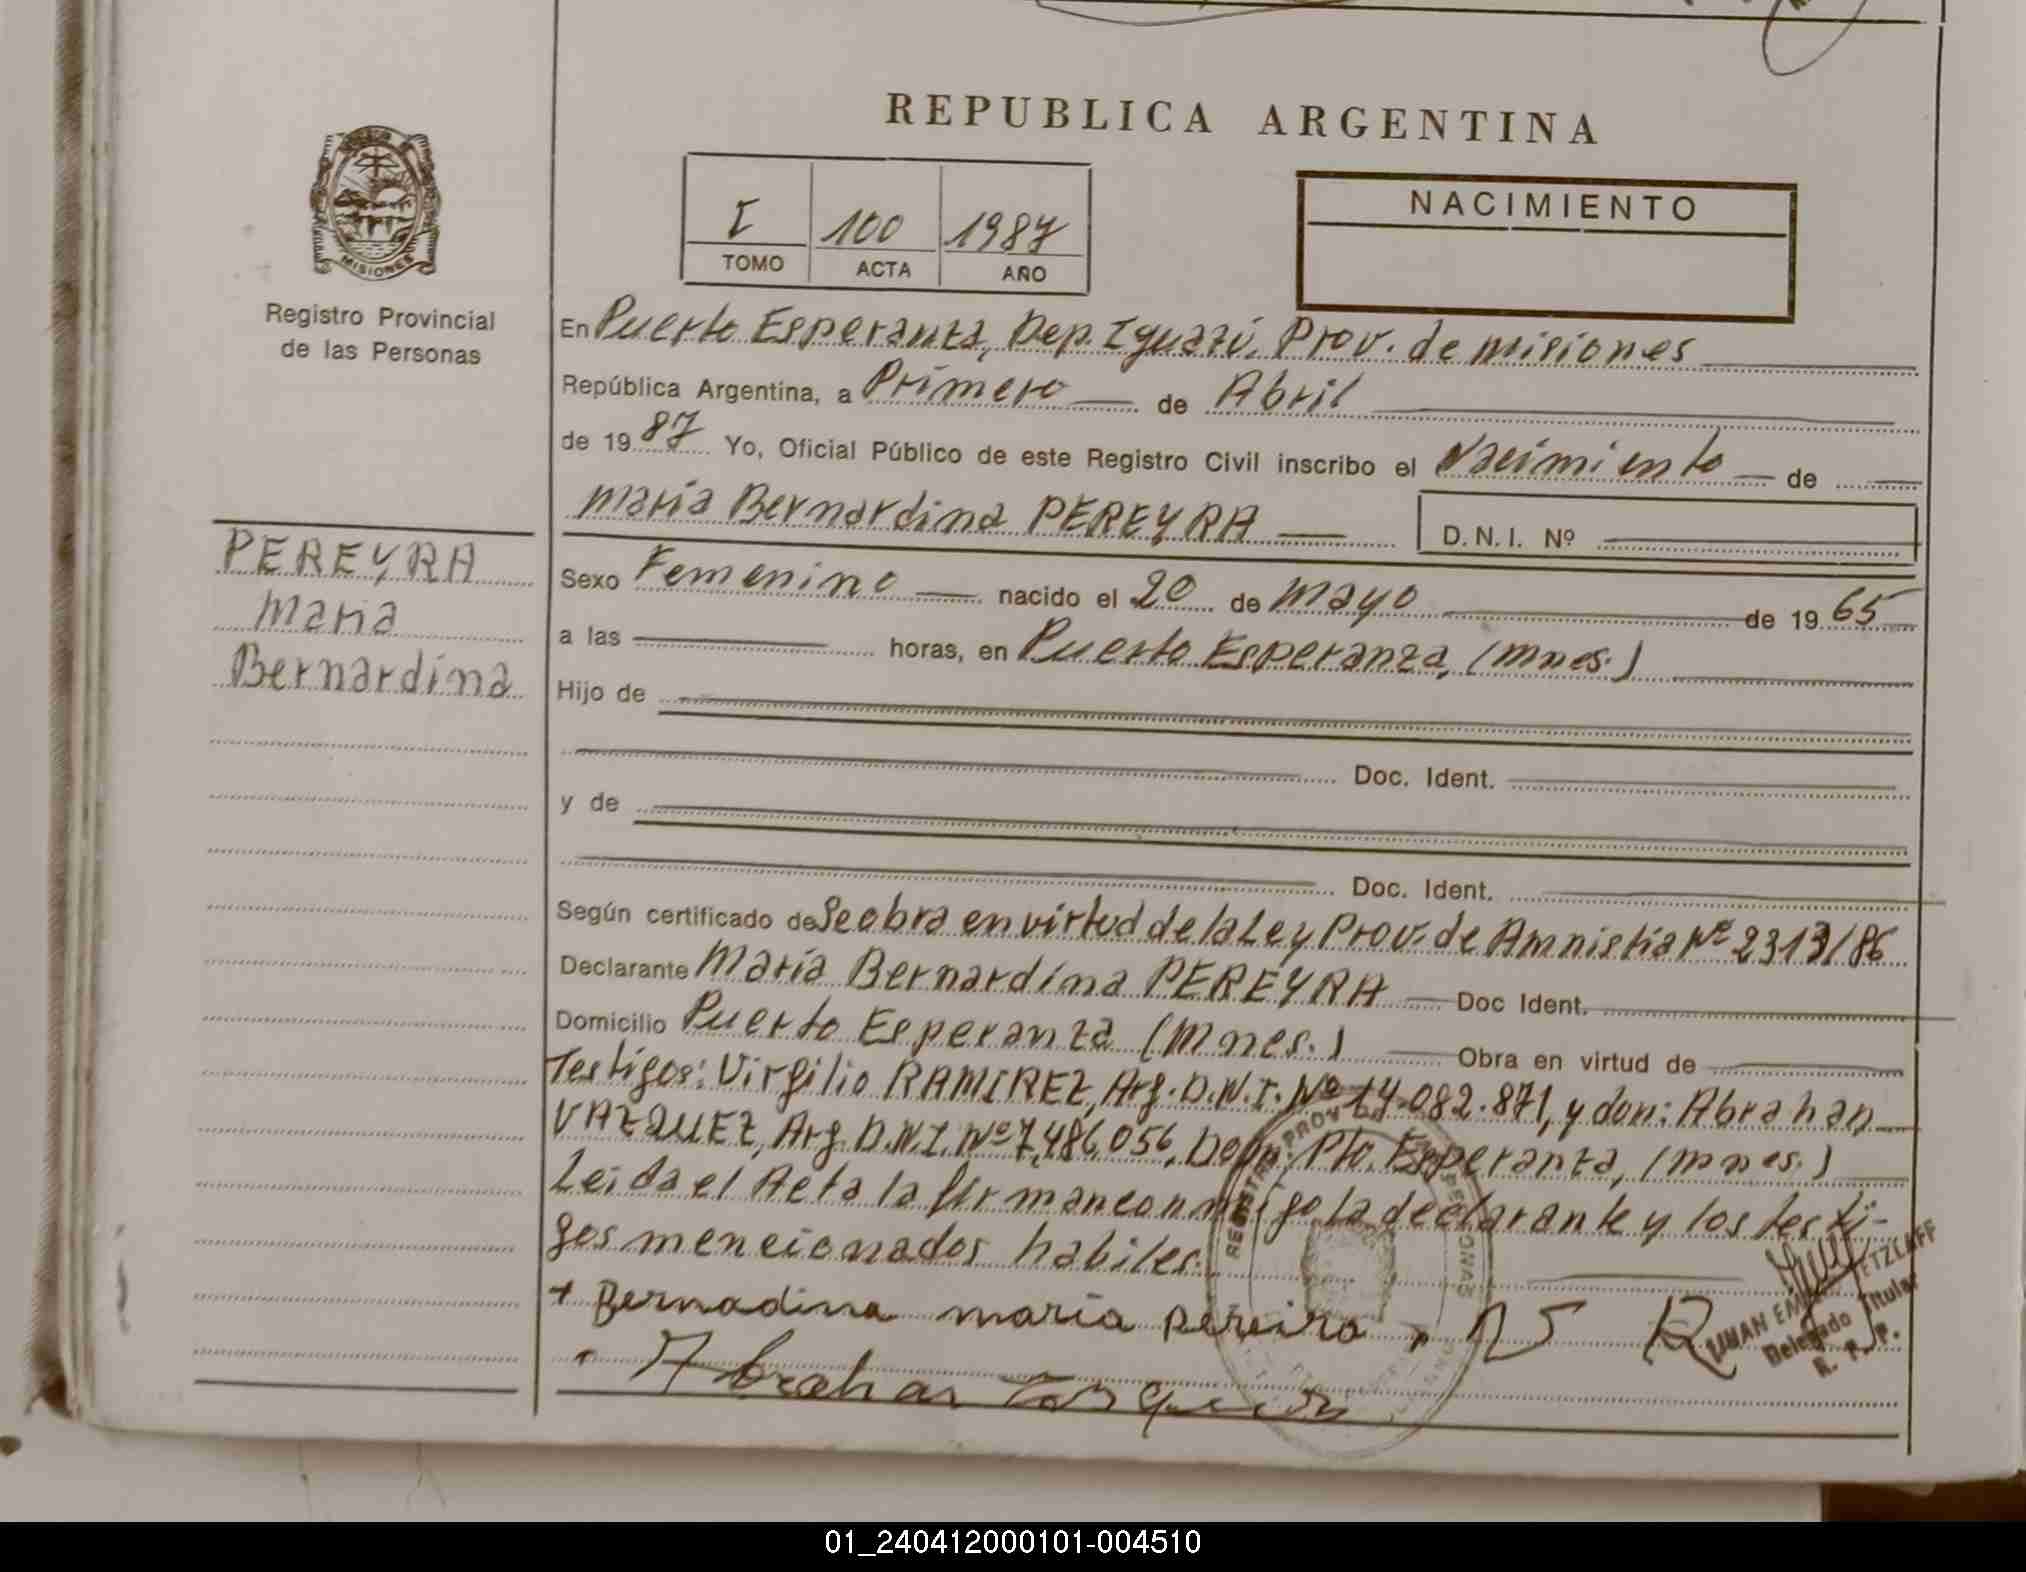 REPUBLICA ARGENTINA
MISIONES
Registro Provincial
de las Personas
I 100 1987
TOMO ACTA AÑO
NACIMIENTO
En Puerto Esperanza, Dep. Iguazú, Prov. de misiones
República Argentina, a Primero de Abril
de 1987 Yo, Oficial Público de este Registro Civil inscribo el Nacimiento de
María Bernardina PEREYRA D.N.I. Nº
PEREYRA
Maria
Bernardina
Sexo Femenino nacido el 20 de Mayo de 1965
a las horas, en Puerto Esperanza, (Mnes.)
Hijo de
Doc. Ident.
y de
Doc. Ident.
Según certificado de Se obra en virtud de la Ley Prov. de Amnistia Nº 2313/86
Declarante María Bernardina PEREYRA Doc Ident.
Domicilio Puerto Esperanza (Mnes.) Obra en virtud de
Testigos: Virgilio RAMIREZ, Arg. D.N.I. Nº 14.082.871, y don: Abrahan
VAZQUEZ, Arg. D.N.I. Nº 7,486,056, Dom: Pto. Esperanza, (mnes.)
Leida el Acta la firman conmigo la declarante y los testi-
gos mencionados habiles.
+ Bernadina maria pereira
Abrahan
Delegado Titular
R. P. P.
01_240412000101-004510